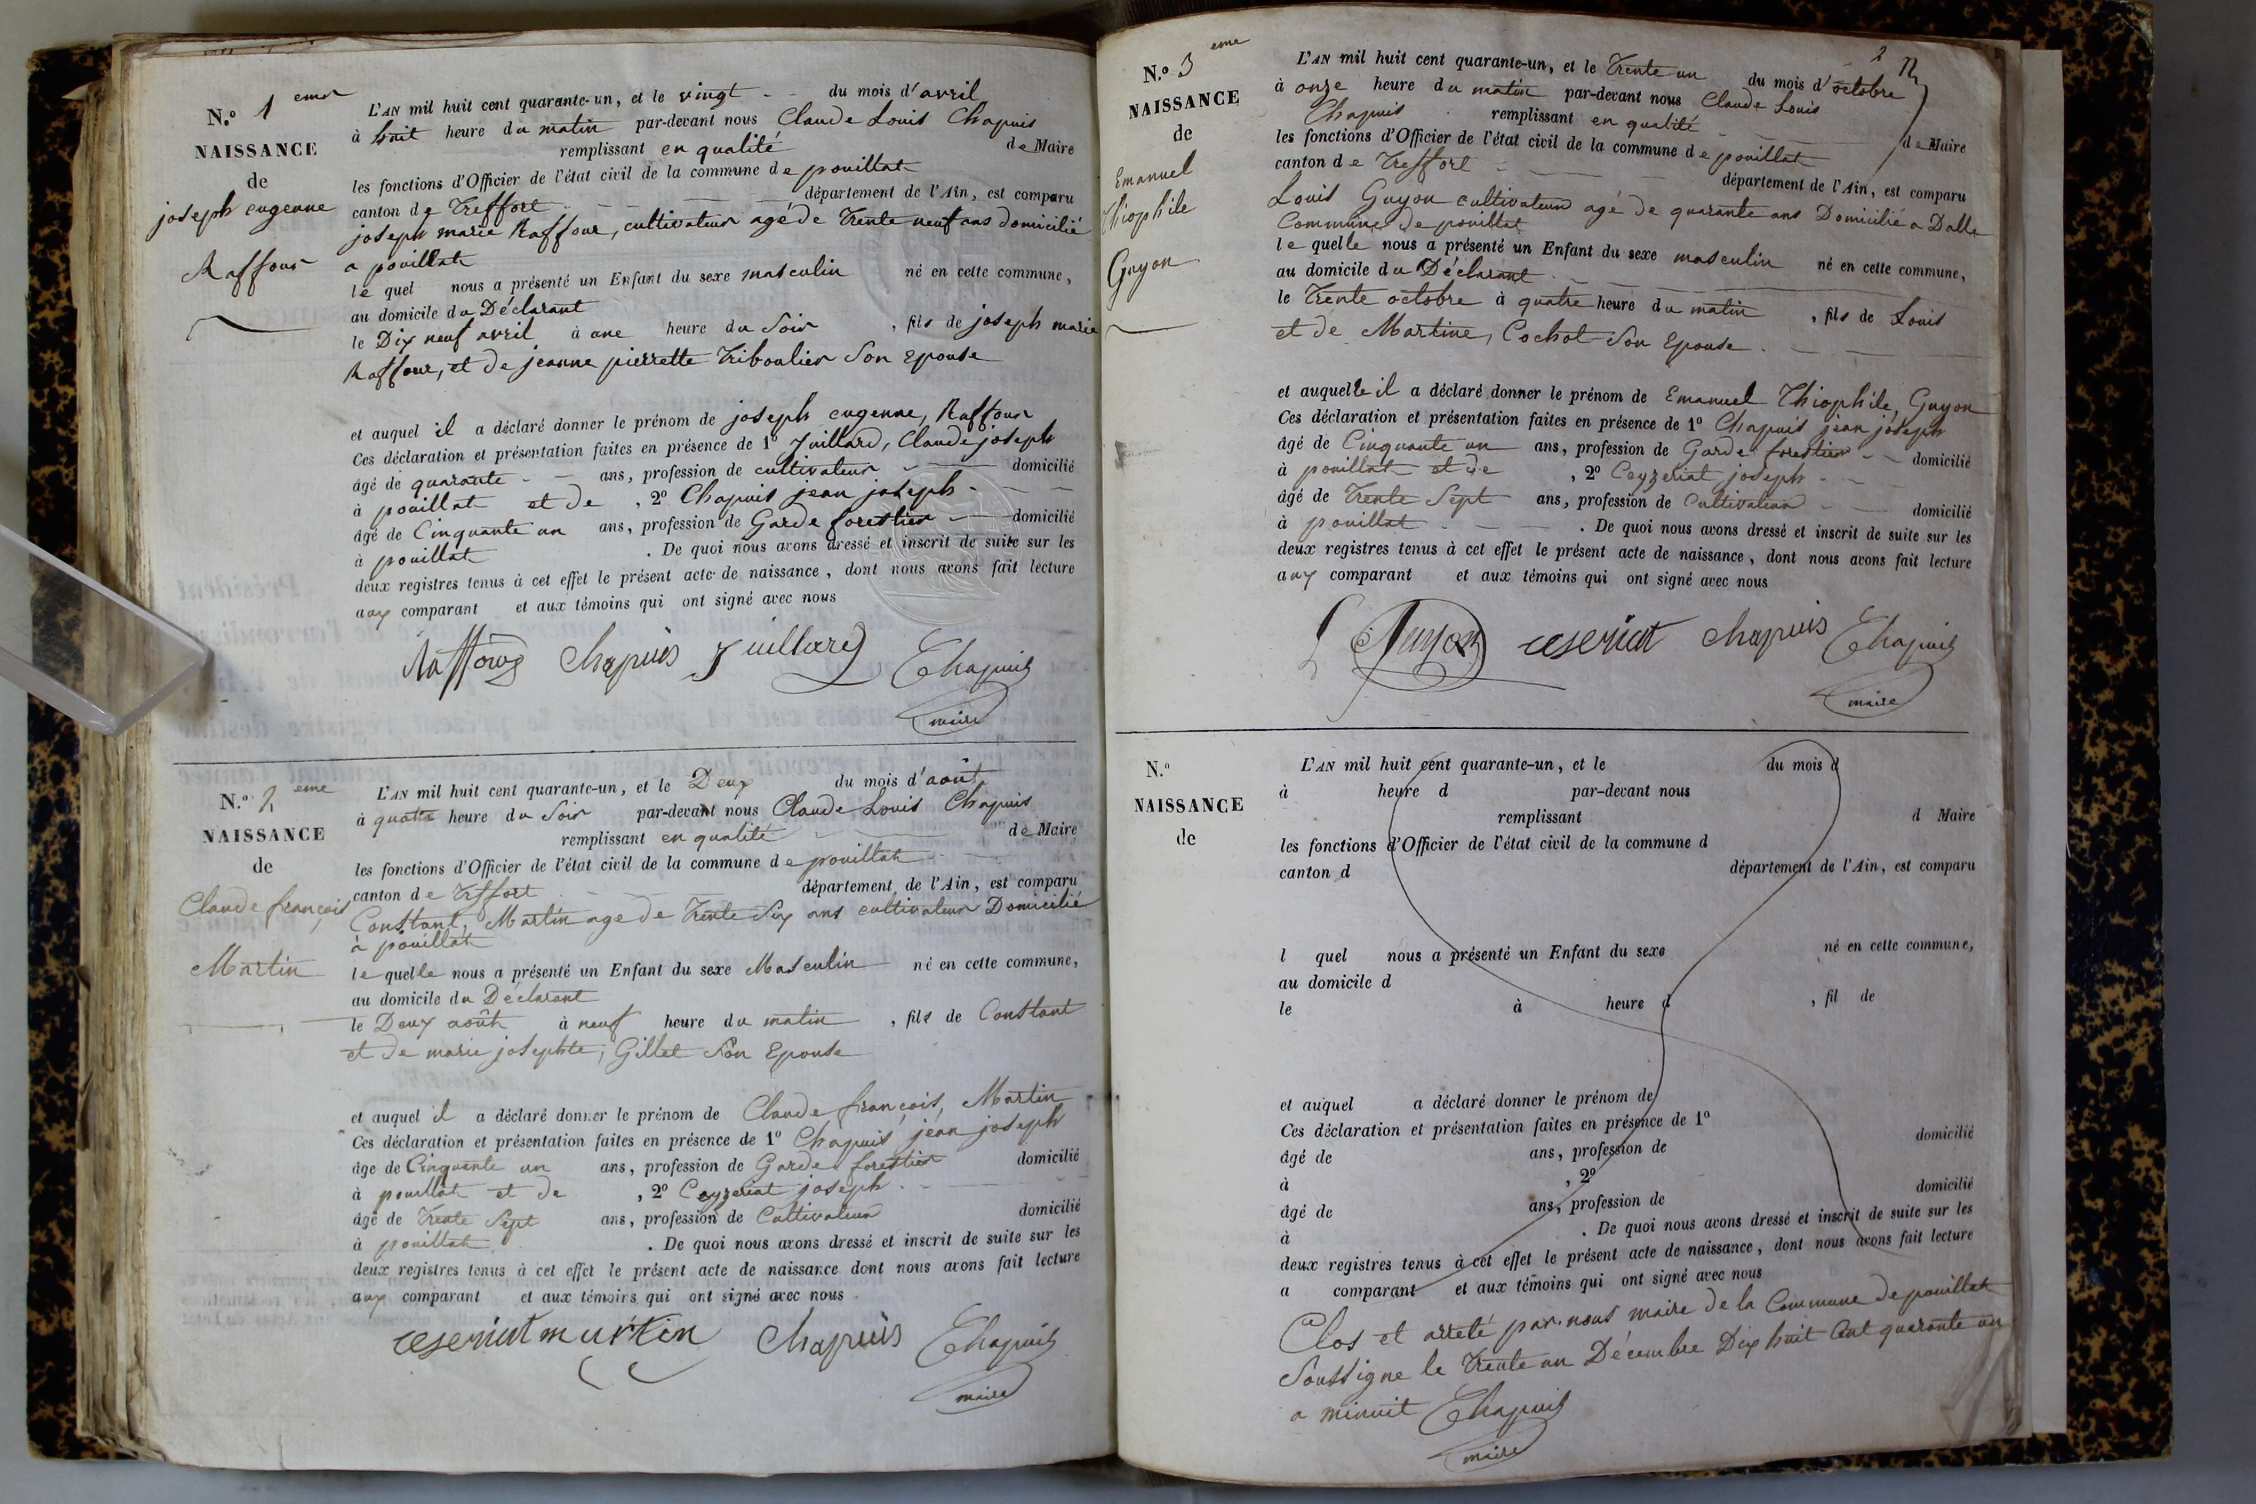 N.º 1 eme
NAISSANCE
de
joseph eugenne
Raffour
L'AN mil huit cent quarante-un, et le vingt - - du mois d'avril
à huit heure du matin par-devant nous Claude Louis Chapuis
remplissant en qualité de Maire
les fonctions d'Officier de l'état civil de la commune de pouillat
canton de Treffort département de l'Ain, est comparu
joseph marie Raffour, cultivateur agé de Trente neuf ans domicilié
a pouillat
le quel nous a présenté un Enfant du sexe masculin né en cette commune,
au domicile du Déclarant
le Dix neuf avril à une heure du Soir , fils de joseph marie
Raffour, et de jeanne pierrette Triboulier Son Epouse
et auquel il a déclaré donner le prénom de joseph eugenne, Raffour
Ces déclaration et présentation faites en présence de 1º Juillard, Claude joseph
âgé de quarante - - ans, profession de cultivateur - domicilié
à pouillat et de , 2º Chapuis jean joseph - - -
âgé de Cinquante un ans, profession de Garde forestier domicilié
à pouillat . De quoi nous avons dressé et inscrit de suite sur les
deux registres tenus à cet effet le présent acte de naissance, dont nous avons fait lecture
aux comparant et aux témoins qui ont signé avec nous
Raffour Chapuis Juillard Chapuis
maire
N.º 2 eme
NAISSANCE
de
Claude françois
Martin
L'AN mil huit cent quarante-un, et le Deux du mois d'août
à quatre heure du Soir par-devant nous Claude Louis Chapuis
remplissant en qualité de Maire
les fonctions d'Officier de l'état civil de la commune de pouillat
canton de Treffort département de l'Ain, est comparu
Constant, Martin age de Trente Six ans cultivateur Domicilié
à pouillat
le quelle nous a présenté un Enfant du sexe Masculin né en cette commune,
au domicile du Déclarant
le Deux août à neuf heure du matin , fils de Constant
et de marie josephte, Gillet Son Epouse
et auquel il a déclaré donner le prénom de Claude françois, Martin
Ces déclaration et présentation faites en présence de 1º Chapuis jean joseph
âge de Cinquante un ans, profession de Garde forestier domicilié
à pouillat et de , 2º Ceyzeriat joseph - -
âgé de Trente Sept ans, profession de Cultivateur domicilié
à pouillat . De quoi nous avons dressé et inscrit de suite sur les
deux registres tenus à cet effet le présent acte de naissance dont nous avons fait lecture
aux comparant et aux témoins qui ont signé avec nous
ceseriat martin Chapuis Chapuis
maire
2
N.º 3 eme
NAISSANCE
de
Emanuel
Thiophile
Guyon
L'AN mil huit cent quarante-un, et le Trente un du mois d'octobre
à onze heure du matin par-devant nous Claude Louis
Chapuis remplissant en qualité de Maire
les fonctions d'Officier de l'état civil de la commune de pouillat
canton de Treffort département de l'Ain, est comparu
Louis Guyon cultivateur agé de quarante ans Domicilié a Dalle
Commune de pouillat
le quelle nous a présenté un Enfant du sexe masculin né en cette commune,
au domicile du Déclarant
le Trente octobre à quatre heure du matin , fils de Louis
et de Martine, Cochot Son Epouse
et auquelle il a déclaré donner le prénom de Emanuel Thiophile, Guyon
Ces déclaration et présentation faites en présence de 1º Chapuis jean joseph
âgé de Cinquante un ans, profession de Garde forestier - - domicilié
à pouillat et de , 2º Ceyzeriat joseph - - -
âgé de Trente Sept ans, profession de Cultivateur domicilié
à pouillat . De quoi nous avons dressé et inscrit de suite sur les
deux registres tenus à cet effet le présent acte de naissance, dont nous avons fait lecture
aux comparant et aux témoins qui ont signé avec nous
L Guyon ceseriat Chapuis Chapuis
maire
N.º
NAISSANCE
de
L'AN mil huit cent quarante-un, et le du mois d
à heure d par-devant nous
remplissant d Maire
les fonctions d'Officier de l'état civil de la commune d
canton d département de l'Ain, est comparu
l quel nous a présenté un Enfant du sexe né en cette commune,
au domicile d
le à heure d , fil de
et auquel a déclaré donner le prénom de
Ces déclaration et présentation faites en présence de 1º
âgé de ans, profession de domicilié
à , 2º
âgé de ans, profession de domicilié
à . De quoi nous avons dressé et inscrit de suite sur les
deux registres tenus à cet effet le présent acte de naissance, dont nous avons fait lecture
a comparant et aux témoins qui ont signé avec nous
Clos et arreté par nous maire de la Commune de pouillat
Soussigne le Trente un Décembre Dix huit Cent quarante un
a minuit Chapuis
maire